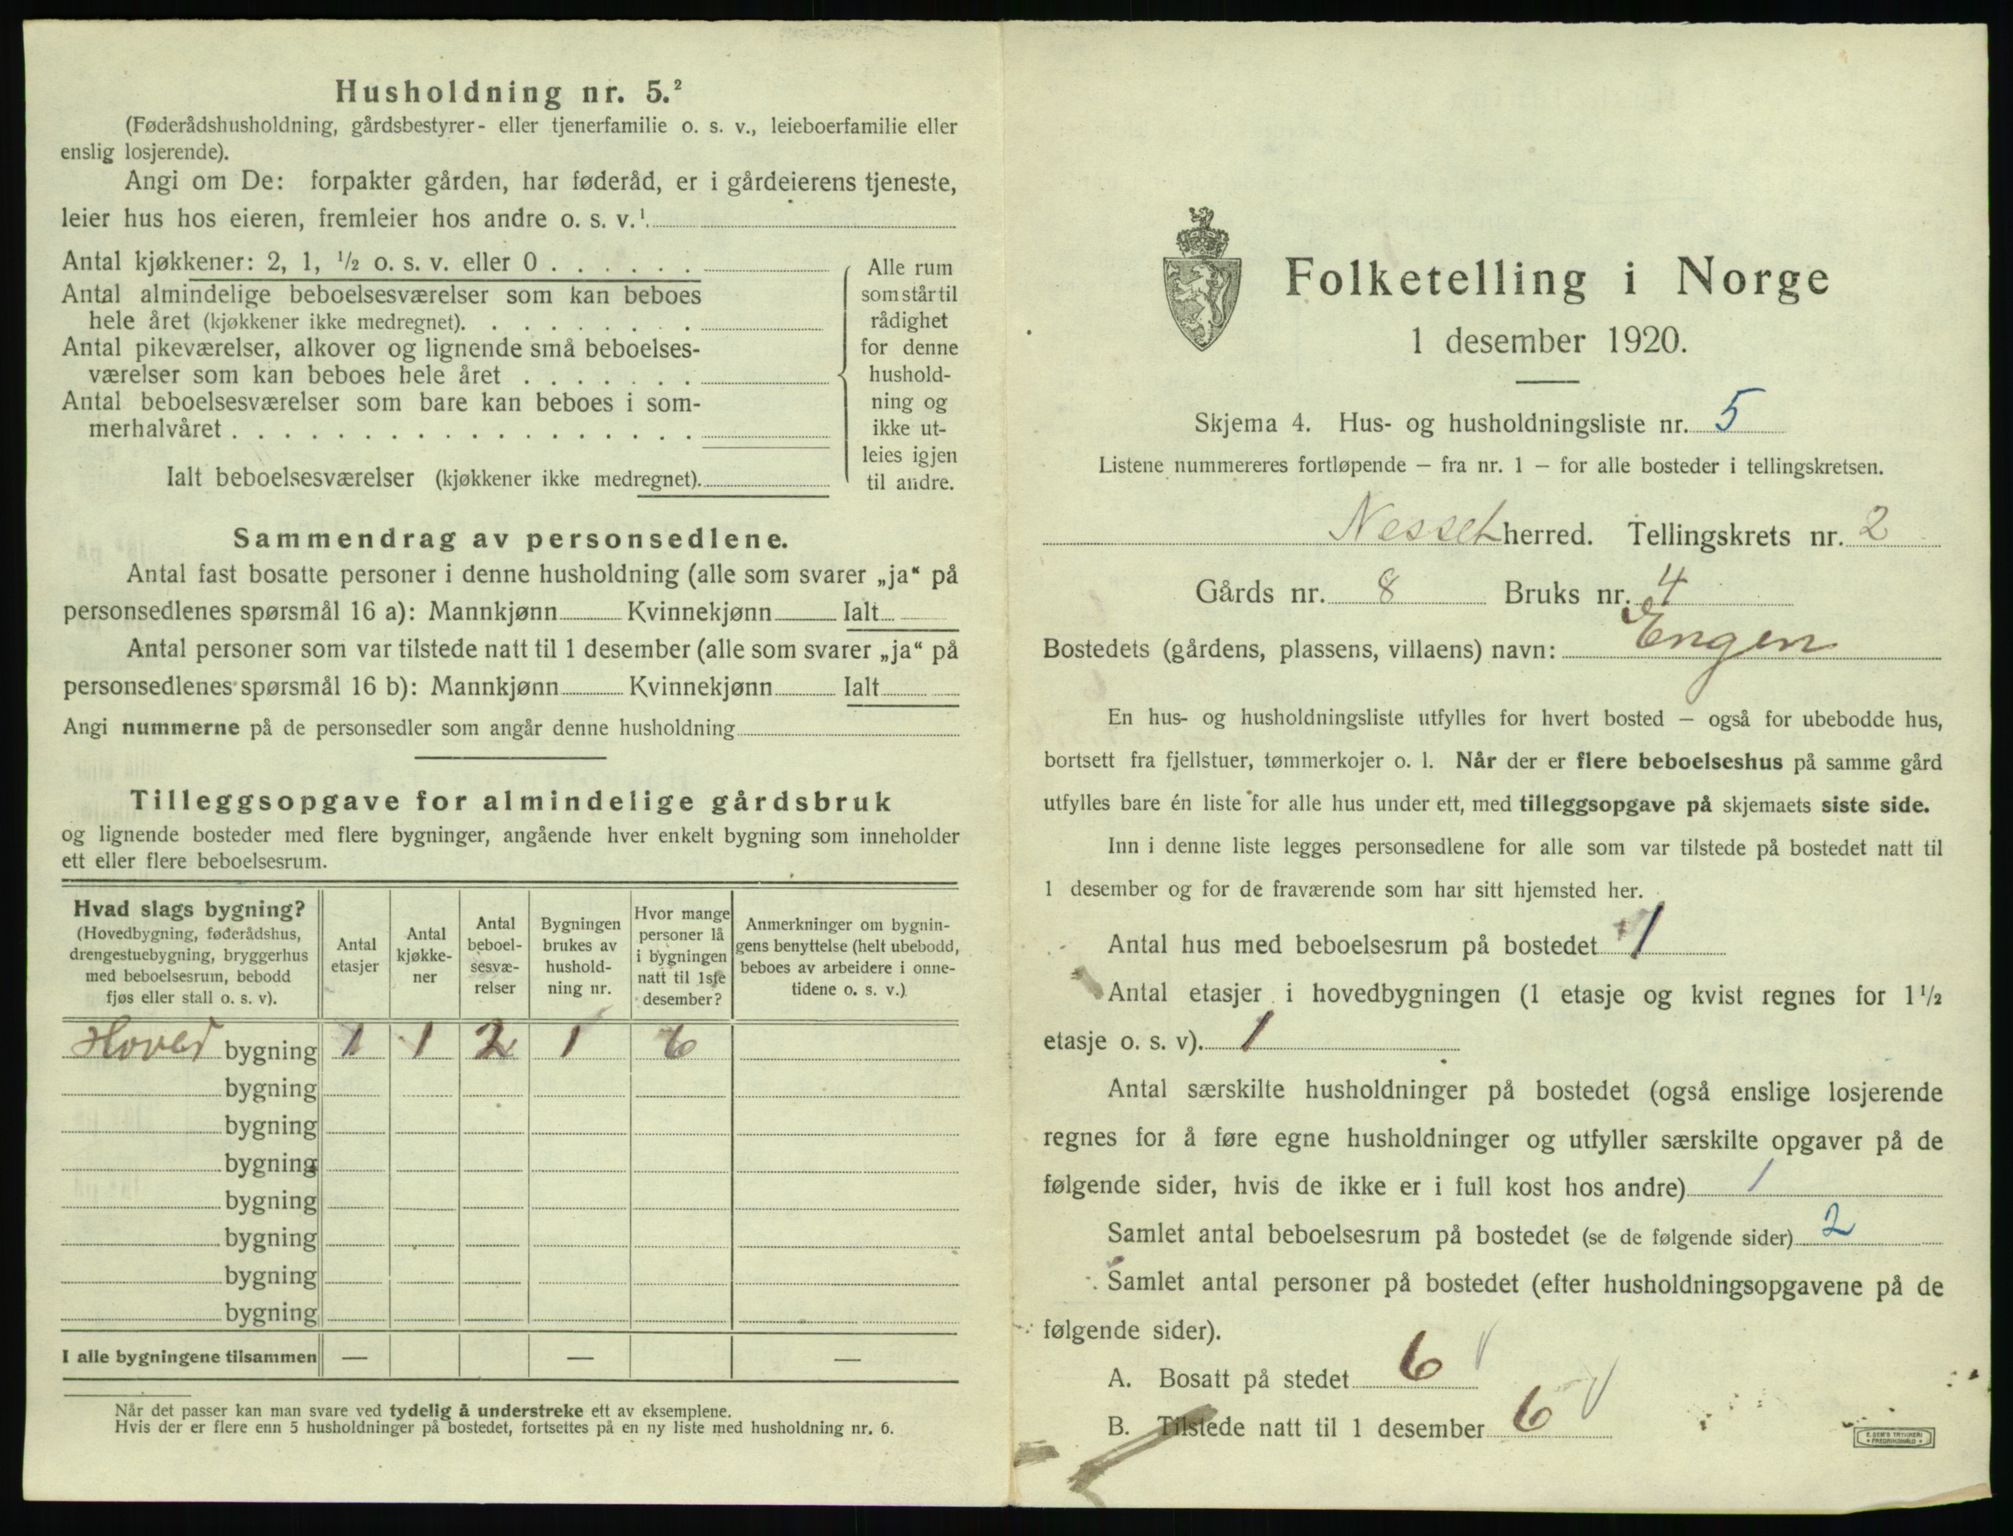 Husholdning nr. 5.²
(Føderådshusholdning, gårdsbestyrer- eller tjenerfamilie o. s. v., leieboerfamilie eller
enslig losjerende).
Angi om De: forpakter gården, har føderåd, er i gårdeierens tjeneste,
leier hus hos eieren, fremleier hos andre o. s. v.¹
Antal kjøkkener: 2, 1, ½ o. s. v. eller 0
Antal almindelige beboelsesværelser som kan beboes
hele året (kjøkkener ikke medregnet).
Antal pikeværelser, alkover og lignende små beboelses-
værelser som kan beboes hele året
Antal beboelsesværelser som bare kan beboes i som-
merhalvåret
Ialt beboelsesværelser (kjøkkener ikke medregnet).
Alle rum
som står til
rådighet
for denne
hushold-
ning og
ikke ut-
leies igjen
til andre.
Sammendrag av personsedlene.
Antal fast bosatte personer i denne husholdning (alle som svarer „ja“ på
personsedlenes spørsmål 16 a): Mannkjønn Kvinnekjønn Ialt
Antal personer som var tilstede natt til 1 desember (alle som svarer „ja“ på
personsedlenes spørsmål 16 b): Mannkjønn Kvinnekjønn Ialt
Angi nummerne på de personsedler som angår denne husholdning
Tilleggsopgave for almindelige gårdsbruk
og lignende bosteder med flere bygninger, angående hver enkelt bygning som inneholder
ett eller flere beboelsesrum.
Hvad slags bygning?
(Hovedbygning, føderådshus,
drengestuebygning, bryggerhus
med beboelsesrum, bebodd
fjøs eller stall o. s. v).
Antal
etasjer
Antal
kjøkke-
ner
Antal
beboel-
sesvæ-
relser
Bygningen
brukes av
hushold-
ning nr.
Hvor mange
personer lå
i bygningen
natt til 1ste
desember?
Anmerkninger om bygnin-
gens benyttelse (helt ubebodd,
beboes av arbeidere i onne-
tidene o. s. v.)
Hoved bygning 1 1 2 1 6
bygning
bygning
bygning
bygning
bygning
bygning
bygning
I alle bygningene tilsammen — — —
Når det passer kan man svare ved tydelig å understreke ett av eksemplene.
Hvis der er flere enn 5 husholdninger på bostedet, fortsettes på en ny liste med husholdning nr. 6.
Folketelling i Norge
1 desember 1920.
Skjema 4. Hus- og husholdningsliste nr. 5
Listene nummereres fortløpende – fra nr. 1 – for alle bosteder i tellingskretsen.
Nesset herred. Tellingskrets nr. 2
Gårds nr. 8 Bruks nr. 4
Bostedets (gårdens, plassens, villaens) navn: Engen
En hus- og husholdningsliste utfylles for hvert bosted – også for ubebodde hus,
bortsett fra fjellstuer, tømmerkojer o. l. Når der er flere beboelseshus på samme gård
utfylles bare én liste for alle hus under ett, med tilleggsopgave på skjemaets siste side.
Inn i denne liste legges personsedlene for alle som var tilstede på bostedet natt til
1 desember og for de fraværende som har sitt hjemsted her.
Antal hus med beboelsesrum på bostedet 1
Antal etasjer i hovedbygningen (1 etasje og kvist regnes for 1½
etasje o. s. v). 1
Antal særskilte husholdninger på bostedet (også enslige losjerende
regnes for å føre egne husholdninger og utfyller særskilte opgaver på de
følgende sider, hvis de ikke er i full kost hos andre) 1
Samlet antal beboelsesrum på bostedet (se de følgende sider) 2
Samlet antal personer på bostedet (efter husholdningsopgavene på de
følgende sider).
A. Bosatt på stedet 6 V
B. Tilstede natt til 1 desember 6 V
E. SEM'S TRYKKERI
FREDRIKSHALD